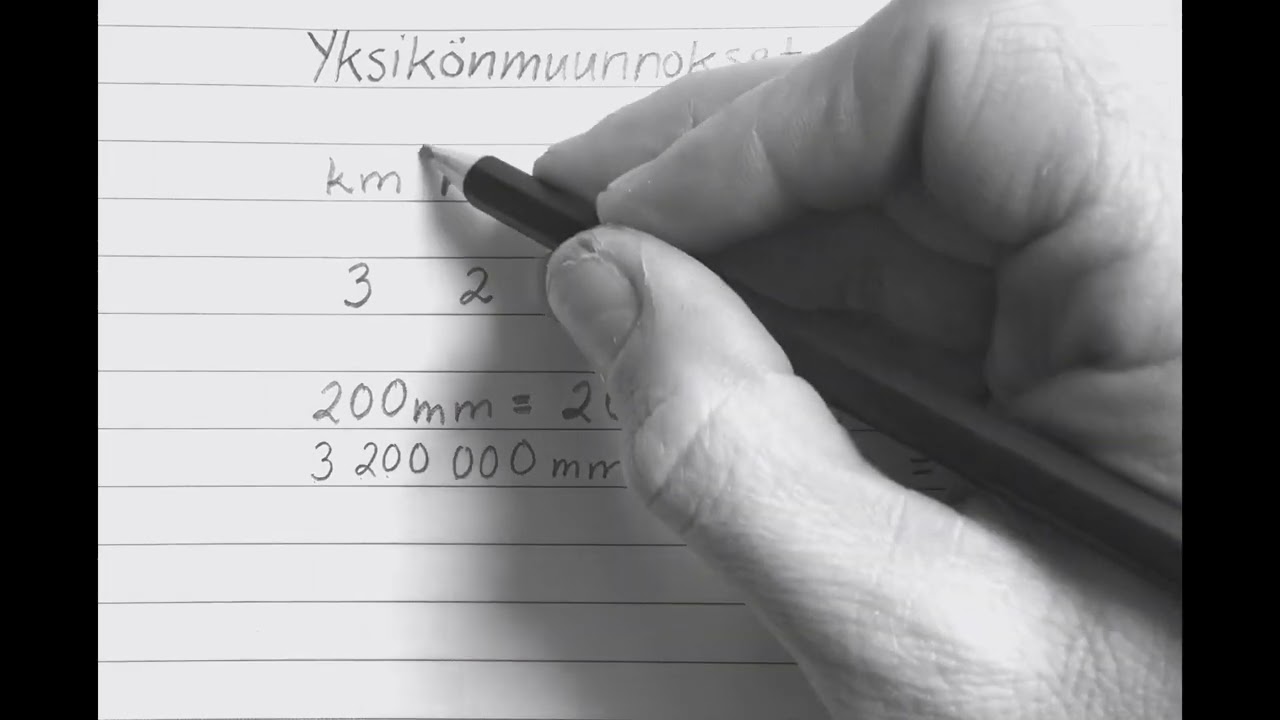 Yksikönmuunnokset
km
3 2
200mm =
3 200 000 mm =